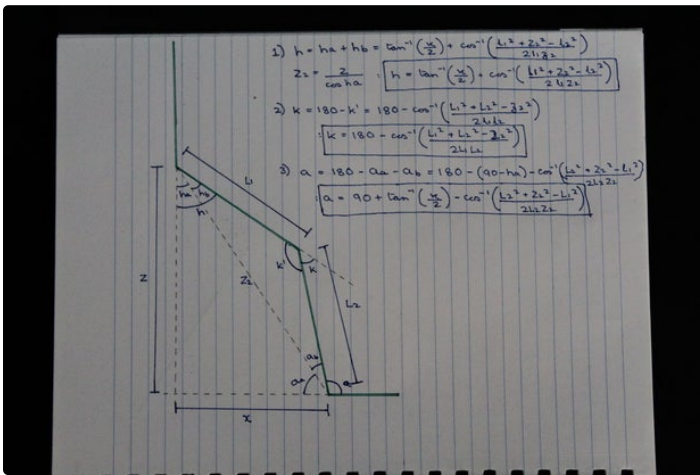 1) h = ha + hb = tan⁻¹(x/z) + cos⁻¹((L₁² + Z₂² - L₂²)/(2L₁Z₂))
Z₂ = z/cos ha ∴ h = tan⁻¹(x/z) + cos⁻¹((L₁² + Z₂² - L₂²)/(2L₁Z₂))
2) k = 180 - k' = 180 - cos⁻¹((L₁² + L₂² - Z₂²)/(2L₁L₂))
∴ k = 180 - cos⁻¹((L₁² + L₂² - Z₂²)/(2L₁L₂))
3) a = 180 - aa - ab = 180 - (90 - ha) - cos⁻¹((L₂² + Z₂² - L₁²)/(2L₂Z₂))
∴ a = 90 + tan⁻¹(x/z) - cos⁻¹((L₂² + Z₂² - L₁²)/(2L₂Z₂))
L₁
ha hb
h
k' k
Z Z₂ L₂
ab
aa a
x